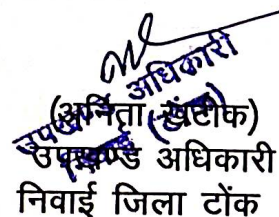 उपखण्ड अधिकारी
निवाई (टोंक)
(अनिता खटीक)
उपखण्ड अधिकारी
निवाई जिला टोंक